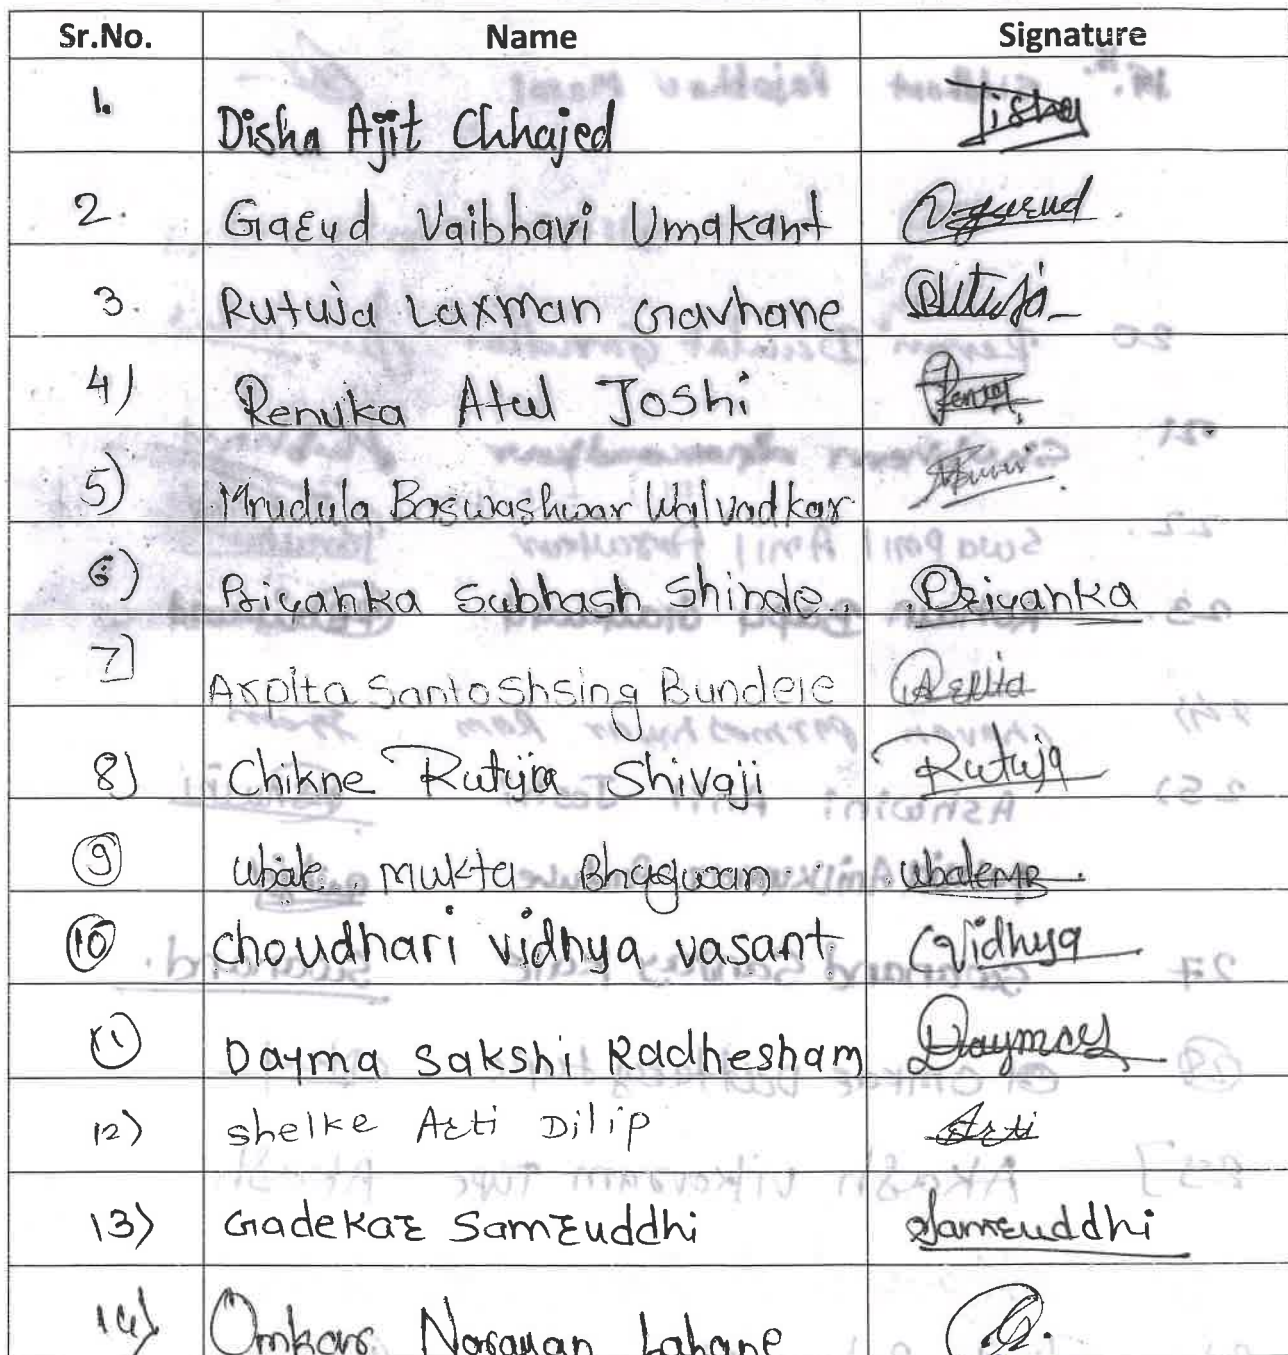 Sr.No. Name Signature
1. Disha Ajit Chhajed Disha
2. Garud Vaibhavi Umakant
3. Rutuja Laxman Gavhane Rutuja
4) Renuka Atul Joshi
5) Mrudula Baswashwar Walvadkar
6) Priyanka Subhash Shinde. Priyanka
7] Arpita Santoshsing Bundele Arpita
8) Chikne Rutuja Shivaji Rutuja
9 Ubale Mukta Bhagwan. UbaleMB.
10 Choudhari vidhya vasant Vidhya
11 Dayma Sakshi Radhesham
12) Shelke Arti Dilip Arti
13) Gadekar Samruddhi Samruddhi
14) Omkar Narayan Lahane